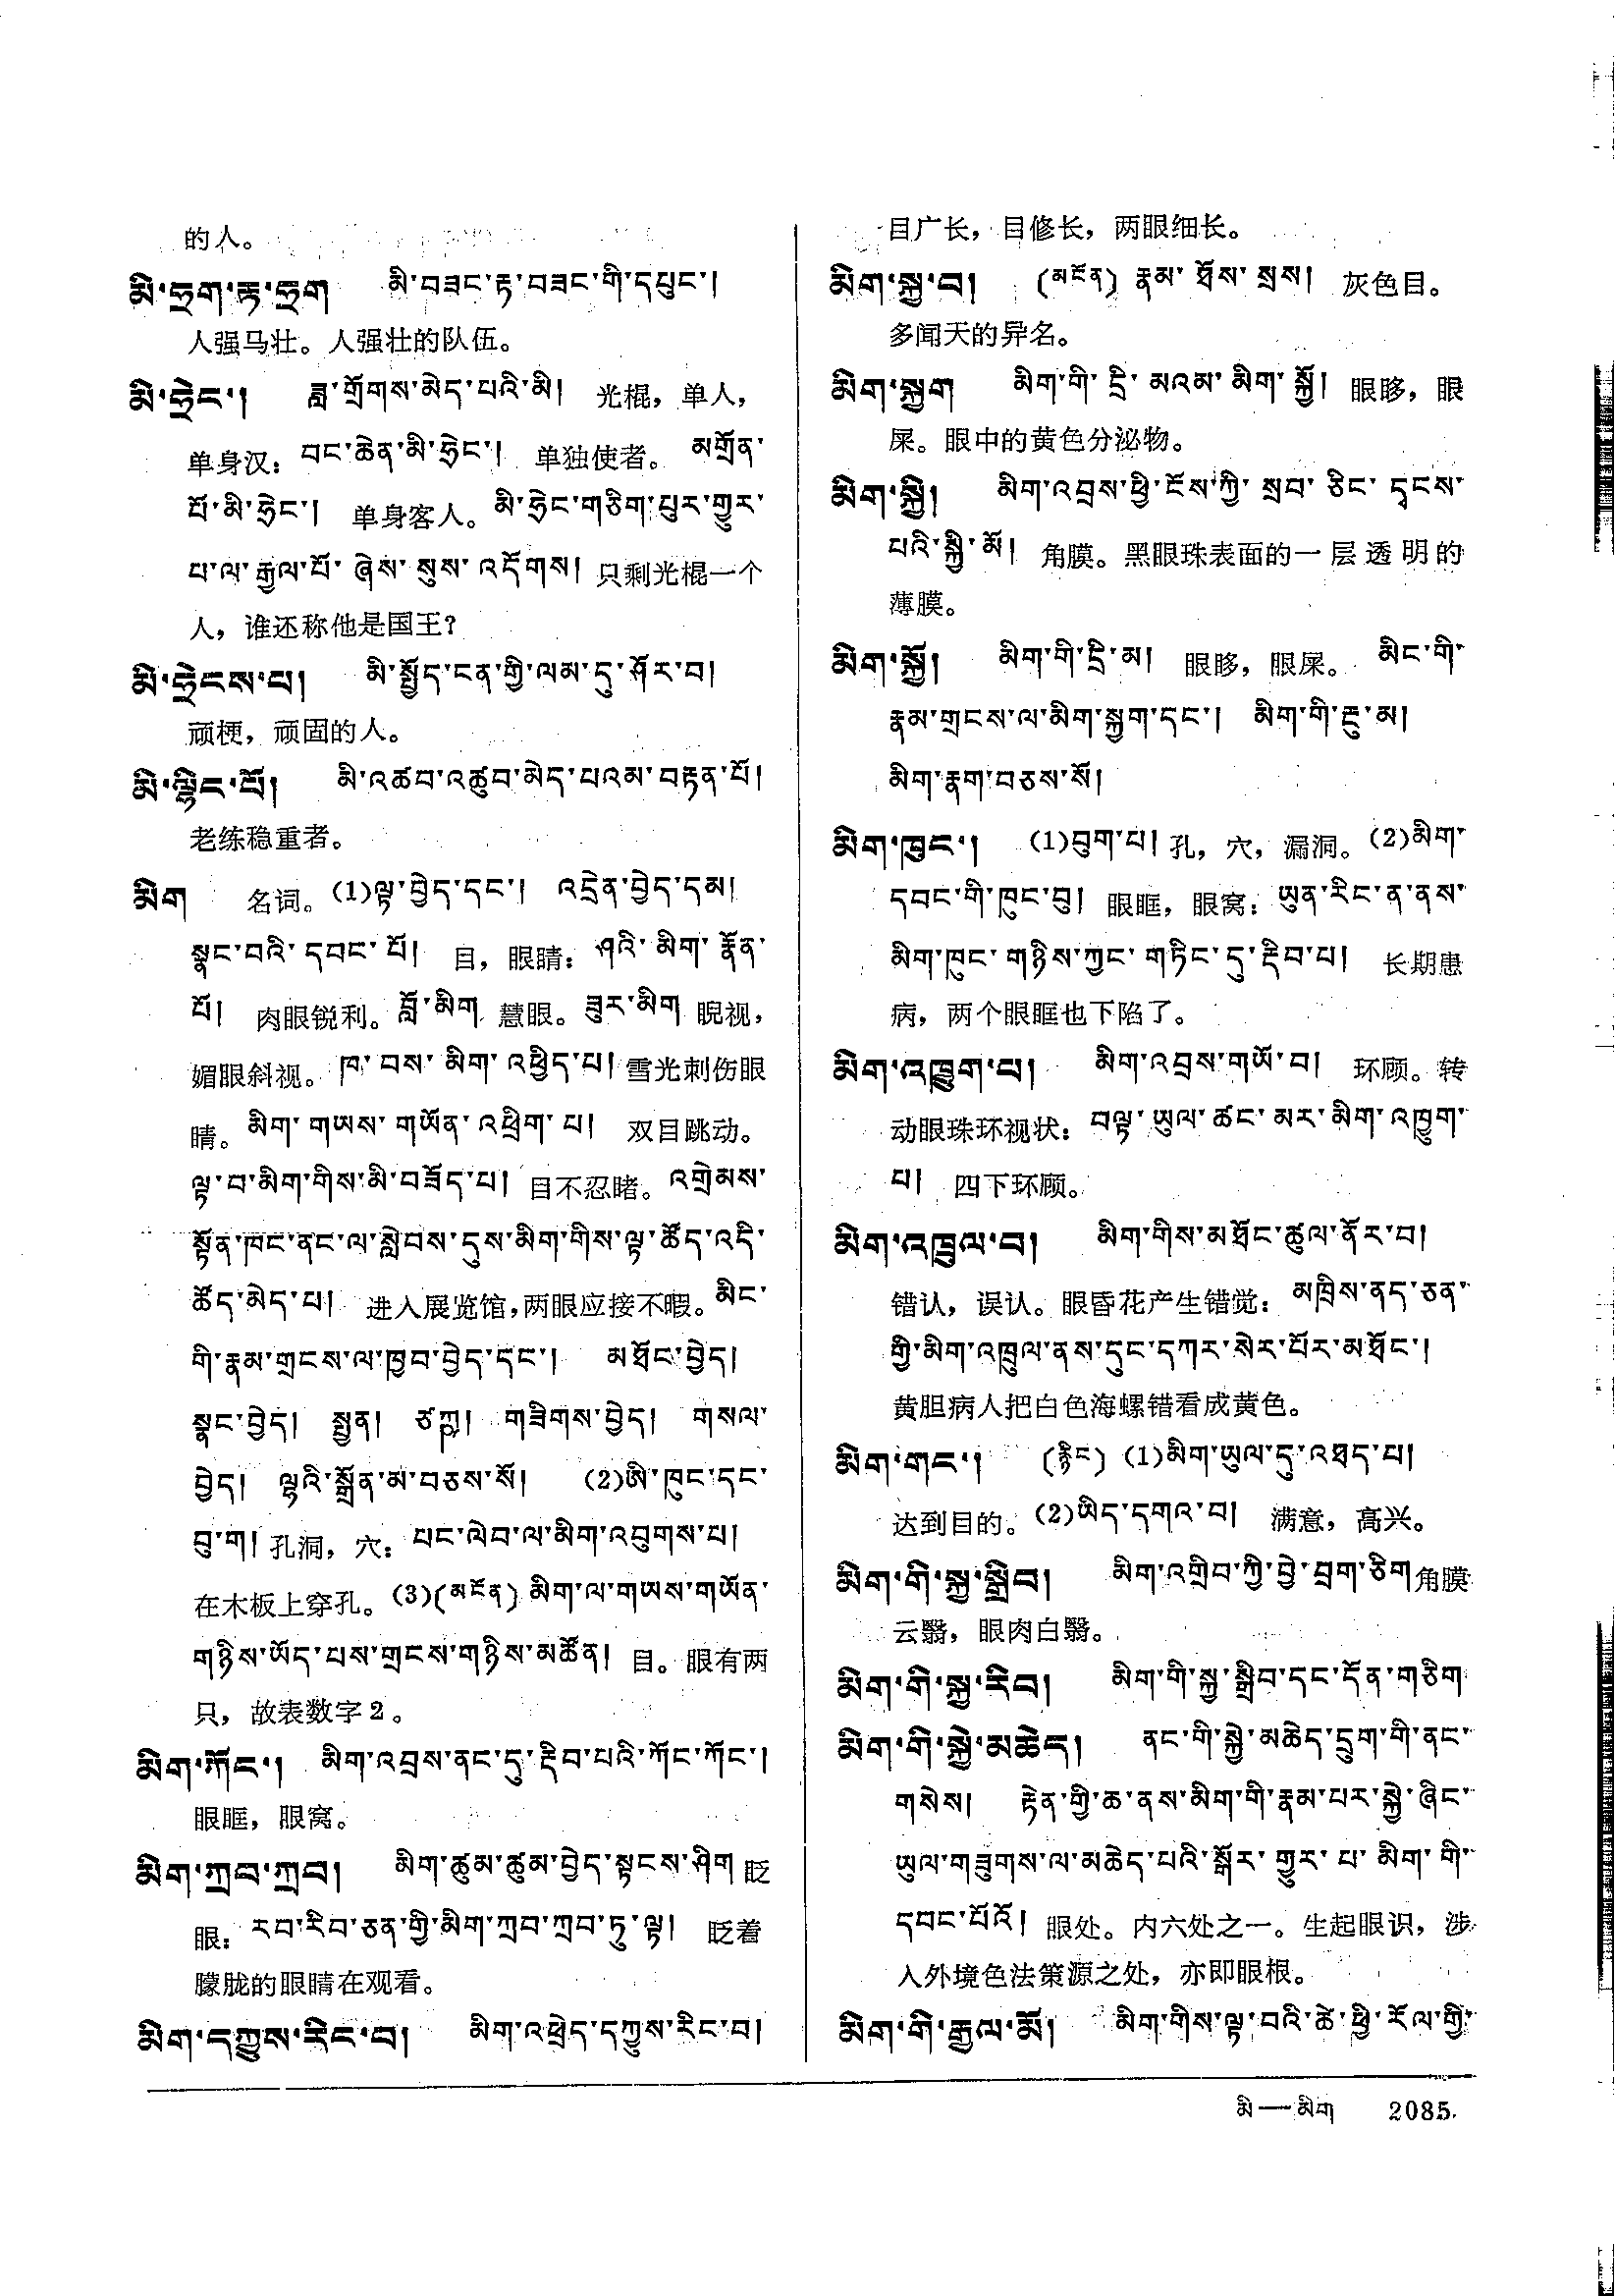 的人。
མི་ཧྲག་རྟ་ཧྲག མི་བཟང་རྟ་བཟང་གི་དཔུང་།
人强马壮。人强壮的队伍。
མི་ཧྲེང་། ཟླ་གྲོགས་མེད་པའི་མི། 光棍，单人，
单身汉：བང་ཆེན་མི་ཧྲེང་། 单独使者。 མགྲོན་
པོ་མི་ཧྲེང་། 单身客人。མི་ཧྲེང་གཅིག་པུར་གྱུར་
པ་ལ་རྒྱལ་པོ་ཞེས་སུས་འདོགས། 只剩光棍一个
人，谁还称他是国王？
མི་ཧྲེངས་པ། མི་སྤྱོད་ངན་གྱི་ལམ་དུ་ཤོར་བ།
顽梗，顽固的人。
མི་ལྷིང་པོ། མི་འཚབ་འཚུབ་མེད་པའམ་བརྟན་པོ།
老练稳重者。
མིག 名词。(1)ལྟ་བྱེད་དང་། འདྲེན་བྱེད་དམ།
སྣང་བའི་དབང་པོ། 目，眼睛：ཤའི་མིག་རྣོན་
པོ། 肉眼锐利。བློ་མིག 慧眼。ཟུར་མིག 睨视，
媚眼斜视。ཁ་བས་མིག་འཕྱིད་པ། 雪光刺伤眼
睛。མིག་གཡས་གཡོན་འཕྲིག་པ། 双目跳动。
ལྟ་བ་མིག་གིས་མི་བཟོད་པ། 目不忍睹。འགྲེམས་
སྟོན་ཁང་ནང་ལ་སླེབས་དུས་མིག་གིས་ལྟ་ཚོད་འདི་
ཚོད་མེད་པ། 进入展览馆，两眼应接不暇。མིང་
གི་རྣམ་གྲངས་ལ་ཁྱབ་བྱེད་དང་། མཐོང་བྱེད།
སྣང་བྱེད། སྤྱན། ཙཀྵུ། གཟིགས་བྱེད། གསལ་
བྱེད། ལྷའི་སྒྲོན་མ་བཅས་སོ། (2)ཨི་ཁུང་དང་
བུ་ག། 孔洞，穴：པང་ལེབ་ལ་མིག་འབུགས་པ།
在木板上穿孔。(3)(མངོན) མིག་ལ་གཡས་གཡོན་
གཉིས་ཡོད་པས་གྲངས་གཉིས་མཚོན། 目。眼有两
只，故表数字2。
མིག་ཀོང་། མིག་འབྲས་ནང་དུ་རྡིབ་པའི་ཀོང་ཀོང་།
眼眶，眼窝。
མིག་ཀྲབ་ཀྲབ། མིག་ཚུམ་ཚུམ་བྱེད་སྟངས་ཤིག 眨
眼：རབ་རིབ་ཅན་གྱི་མིག་ཀྲབ་ཀྲབ་ཏུ་ལྟ། 眨着
朦胧的眼睛在观看。
མིག་དཀྱུས་རིང་བ། མིག་འཕྲེད་དཀྱུས་རིང་བ།
目广长，目修长，两眼细长。
མིག་སྐྱ་བ། (མངོན) རྣམ་ཐོས་སྲས། 灰色目。
多闻天的异名。
མིག་སྐྱག མིག་གི་དྲི་མའམ་མིག་སྐྱོ། 眼眵，眼
屎。眼中的黄色分泌物。
མིག་སྐྱི། མིག་འབྲས་ཕྱི་ངོས་ཀྱི་སྲབ་ཅིང་དྭངས་
པའི་སྐྱི་མོ། 角膜。黑眼珠表面的一层透明的
薄膜。
མིག་སྐྱོ། མིག་གི་དྲི་མ། 眼眵，眼屎。 མིང་གི་
རྣམ་གྲངས་ལ་མིག་སྐྱག་དང་། མིག་གི་རྡུ་མ།
མིག་རྣག་བཅས་སོ།
མིག་ཁུང་། (1)བུག་པ། 孔，穴，漏洞。(2)མིག་
དབང་གི་ཁུང་བུ། 眼眶，眼窝：ཡུན་རིང་ན་ནས་
མིག་ཁུང་གཉིས་ཀྱང་གཏིང་དུ་རྡིབ་པ། 长期患
病，两个眼眶也下陷了。
མིག་འཁྱུག་པ། མིག་འབྲས་གཡོ་བ། 环顾。转
动眼珠环视状：བལྟ་ཡུལ་ཚང་མར་མིག་འཁྱུག་
པ། 四下环顾。
མིག་འཁྲུལ་བ། མིག་གིས་མཐོང་ཚུལ་ནོར་བ།
错认，误认。眼昏花产生错觉：མཁྲིས་ནད་ཅན་
གྱི་མིག་འཁྲུལ་ནས་དུང་དཀར་སེར་པོར་མཐོང་།
黄胆病人把白色海螺错看成黄色。
མིག་གང་། (རྙིང) (1)མིག་ཡུལ་དུ་འཐད་པ།
达到目的。(2)ཡིད་དགའ་བ། 满意，高兴。
མིག་གི་སྐྱ་སྒྲིབ། མིག་འགྲིབ་ཀྱི་བྱེ་བྲག་ཅིག 角膜
云翳，眼肉白翳。
མིག་གི་སྐྱ་རིབ། མིག་གི་སྐྱ་སྒྲིབ་དང་དོན་གཅིག
མིག་གི་སྐྱེ་མཆེད། ནང་གི་སྐྱེ་མཆེད་དྲུག་གི་ནང་
གསེས། རྟེན་གྱི་ཆ་ནས་མིག་གི་རྣམ་པར་སྐྱེ་ཞིང་
ཡུལ་གཟུགས་ལ་མཆེད་པའི་སྒོར་གྱུར་པ་མིག་གི་
དབང་པོའོ། 眼处。内六处之一。生起眼识，涉
入外境色法策源之处，亦即眼根。
མིག་གི་རྒྱལ་མོ། མིག་གིས་ལྟ་བའི་ཚེ་ཕྱི་རོལ་གྱི་
མི—མིག 2085